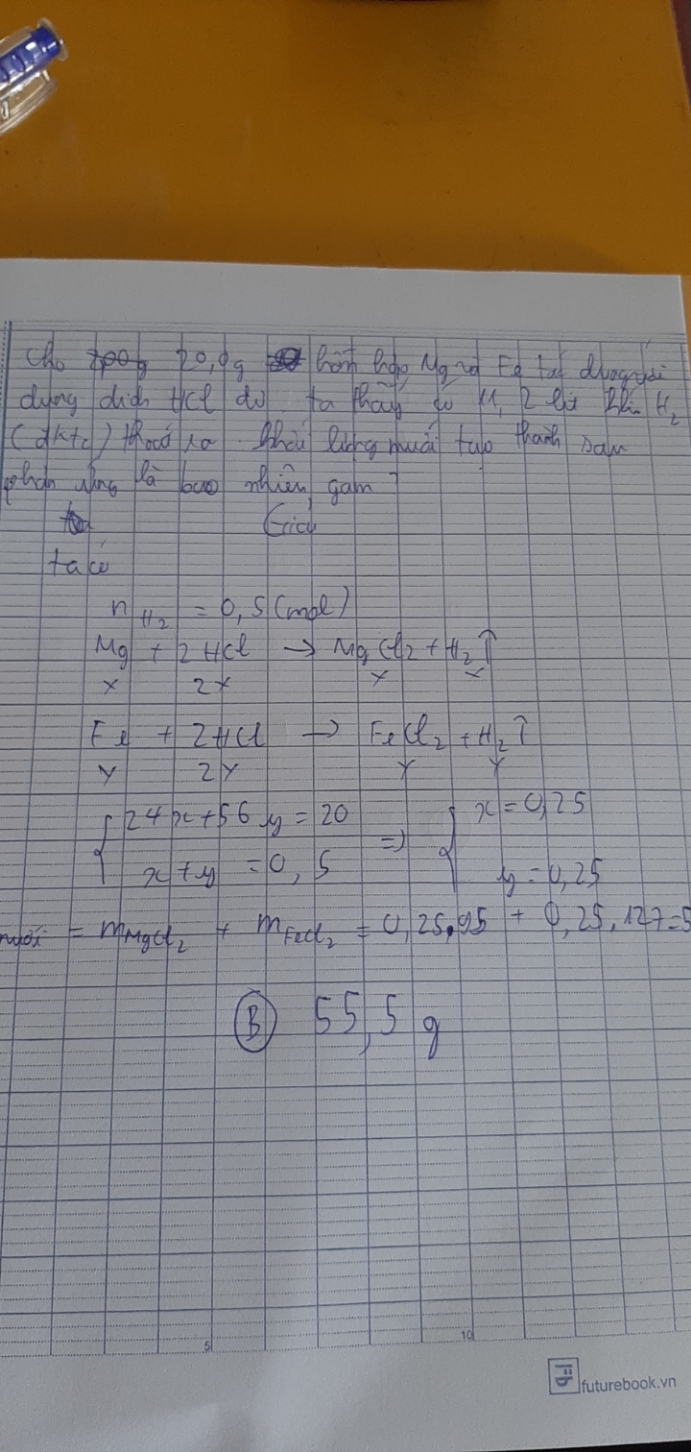 Cho 20,0g hỗn hợp Mg và Fe tác dụng với
dung dịch HCl dư ta thấy có 11,2 lít khí H2
(đktc) thoát ra. Khối lượng muối tạo thành sau
phản ứng là bao nhiêu gam?
Giải
ta có
nH2 = 0,5 (mol)
Mg + 2HCl → MgCl2 + H2↑
x 2x x x
Fe + 2HCl → FeCl2 + H2↑
y 2y y y
24x + 56y = 20 => x = 0,25
x + y = 0,5 y = 0,25
muối = mMgCl2 + mFeCl2 = 0,25.95 + 0,25.127 = 5
B 55,5 g
5
10
futurebook.vn